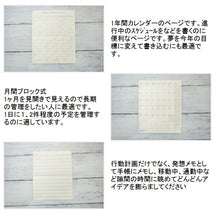 1年間カレンダーのページです。進
行中のスケジュールなどを書くのに
便利なページです。夢を今年の目
標に変えて書き込むにも最適で
す。
月間ブロック式
1ヶ月を見開きで見えるので長期
の管理をしたい人に最適です。
1日に1、2件程度の予定を管理す
るのに適しています。
行動計画だけでなく、発想メモとし
て手帳にメモし、移動中、通勤中な
ど隙間の時間に眺めてどんどんア
イデアを膨らましてください